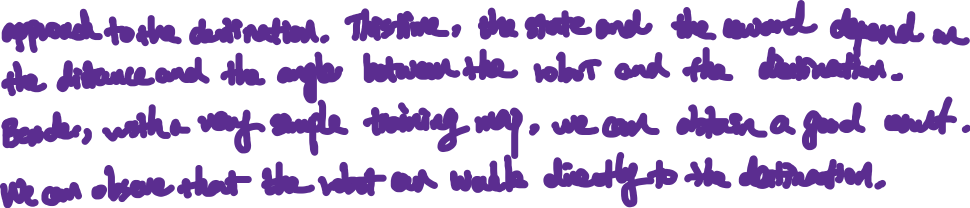 approach to the destination. Therefore, the state and the reward depend on
the distance and the angle between the robot and the destination.
Besides, with a very simple training map, we can obtain a good result.
We can observe that the robot can walk directly to the destination.